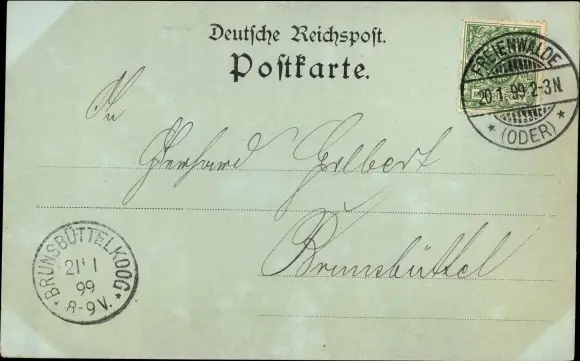 Deutsche Reichspost.
Postkarte.
FREIENWALDE
20.1.99.2-3N.
* (ODER) *
An
Gerhard Gilbert
Brunsbüttel
BRUNSBÜTTELKOOG
21 1
99
8-9V.